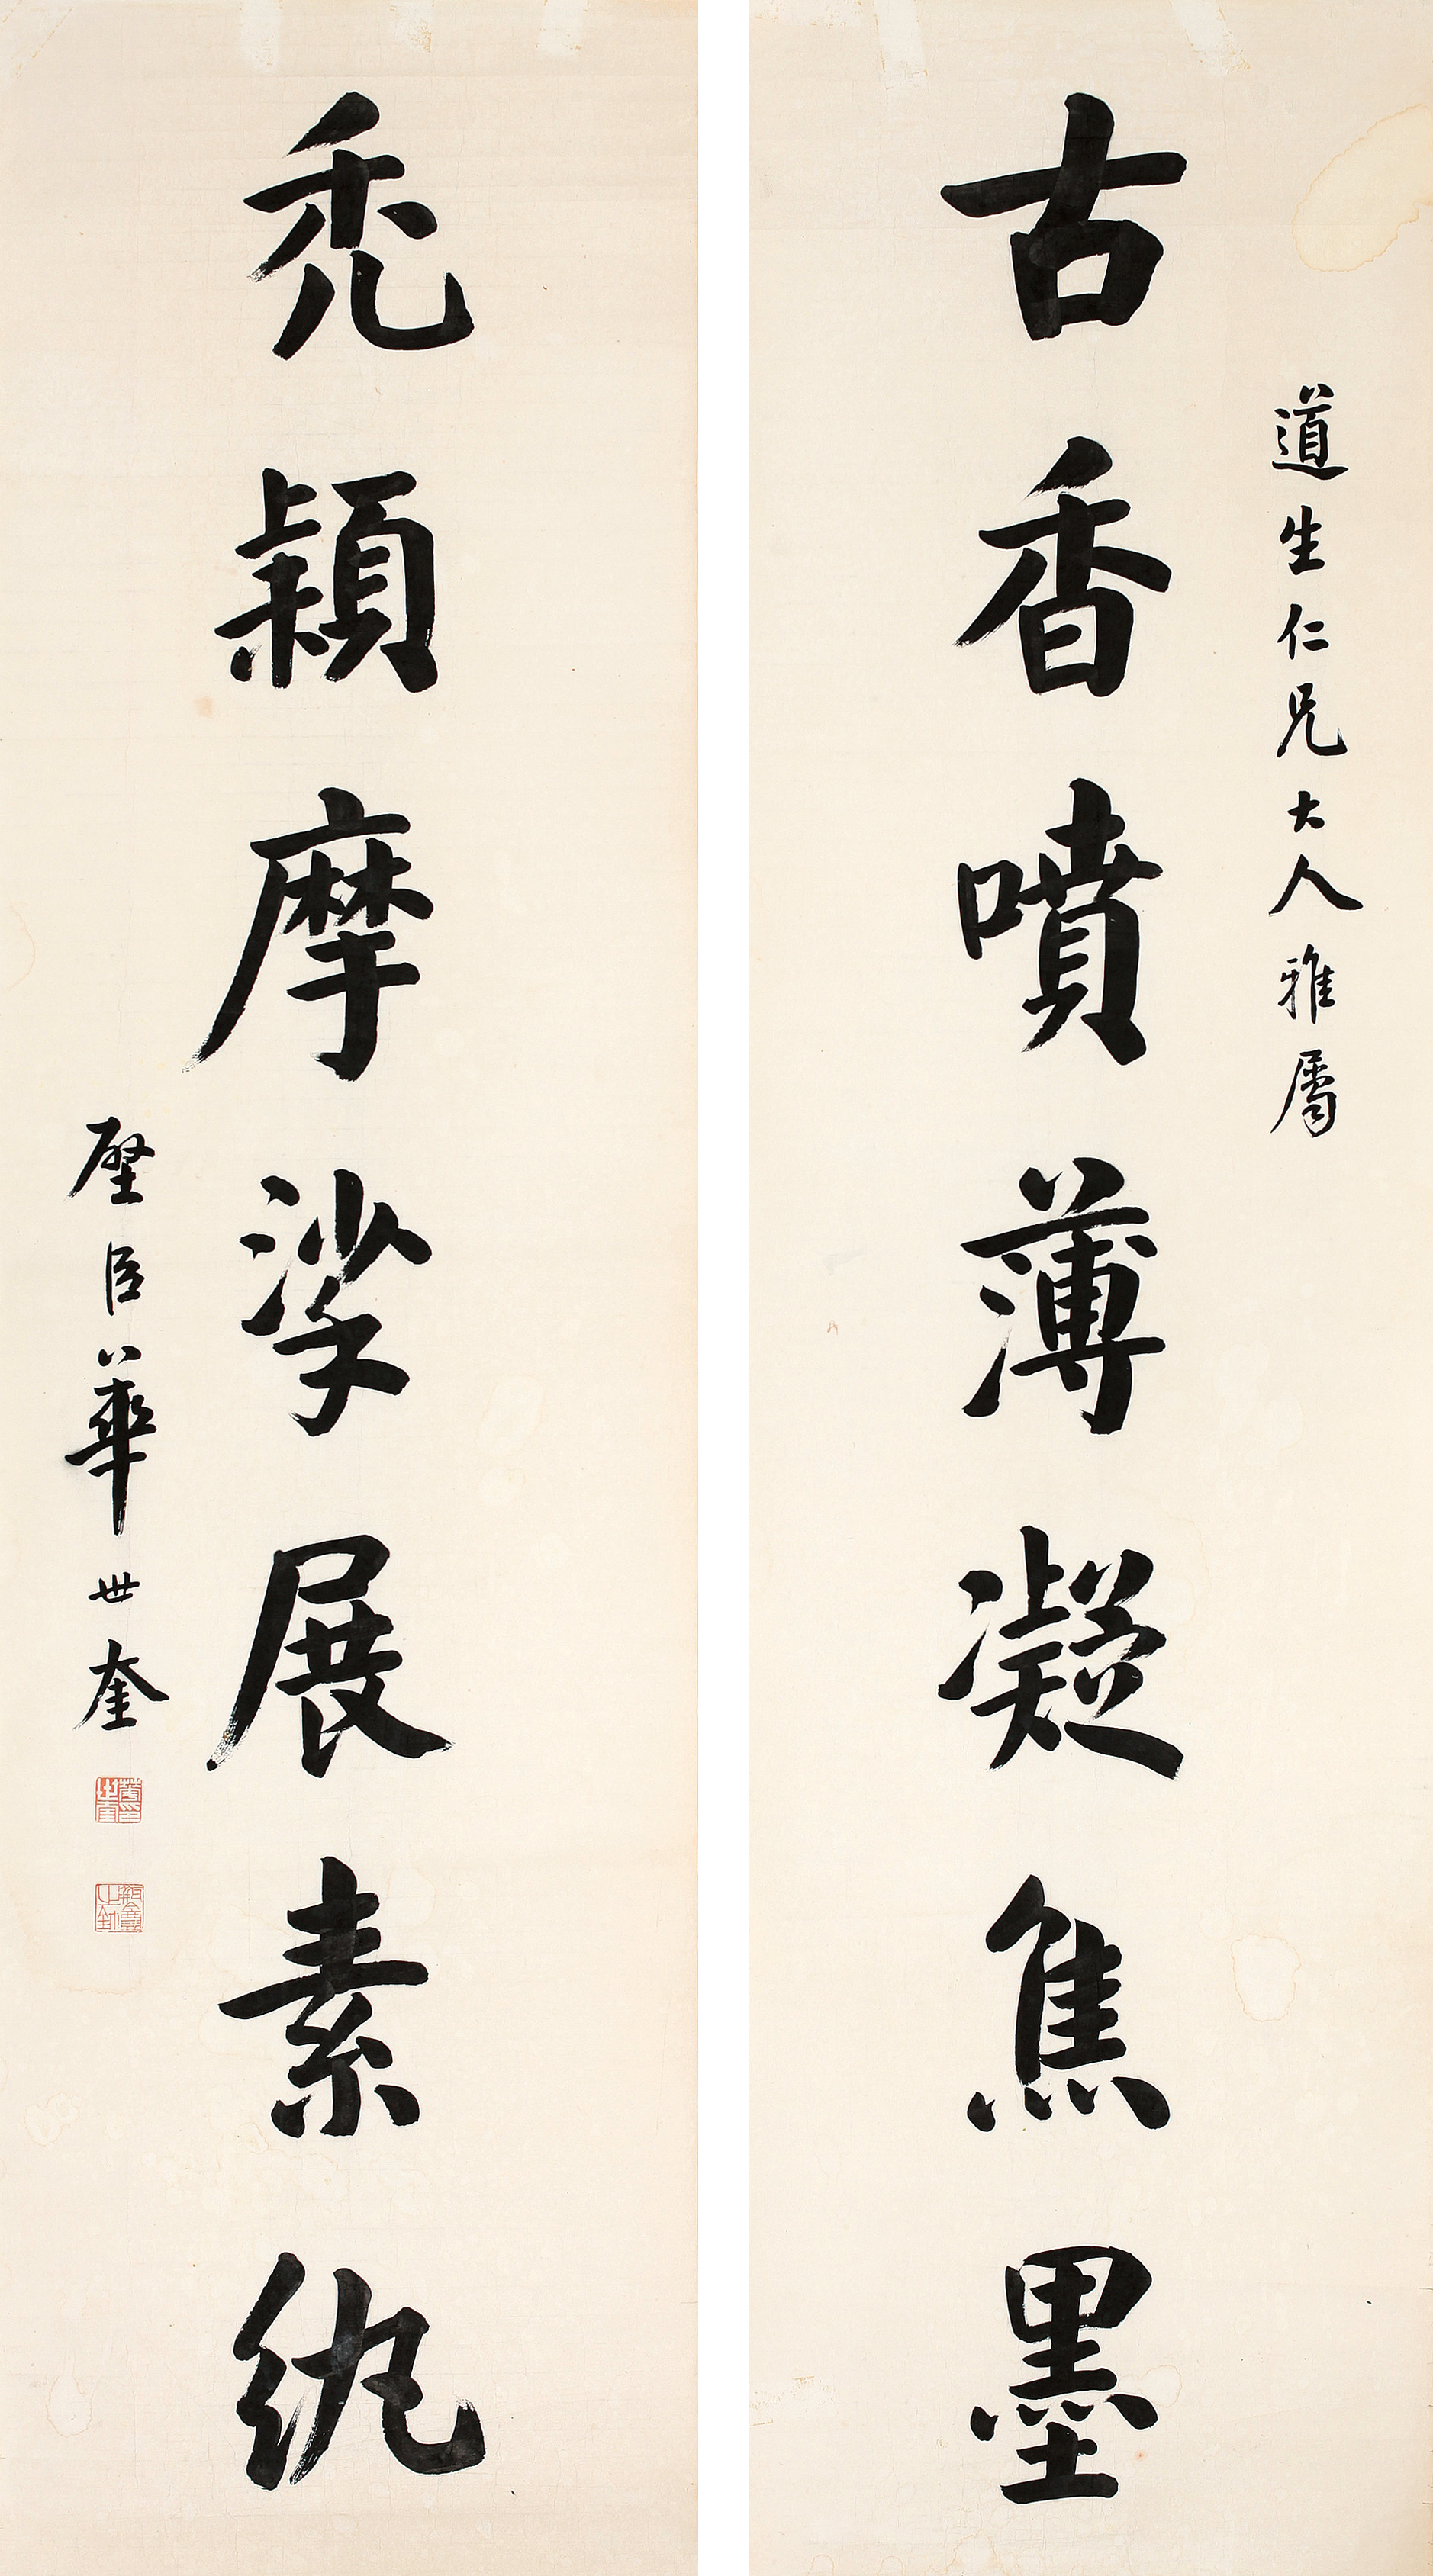 道生仁兄大人雅屬
古香噴薄凝焦墨
禿穎摩挲展素紈
璧臣華世奎
華印世奎